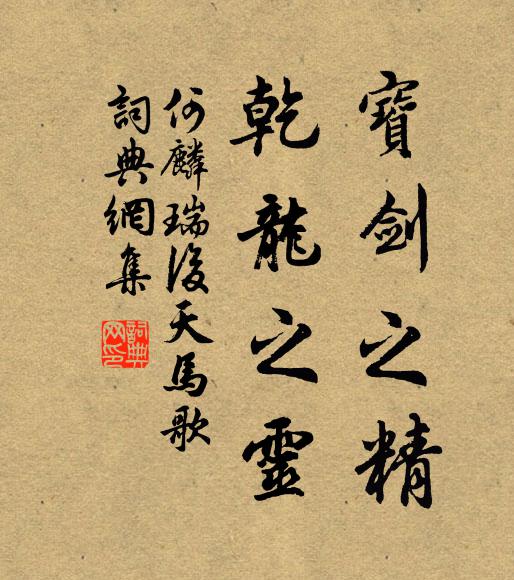 寶劍之精
乾龍之靈
何麟瑞後天馬歌
詞典網集
詞典网印